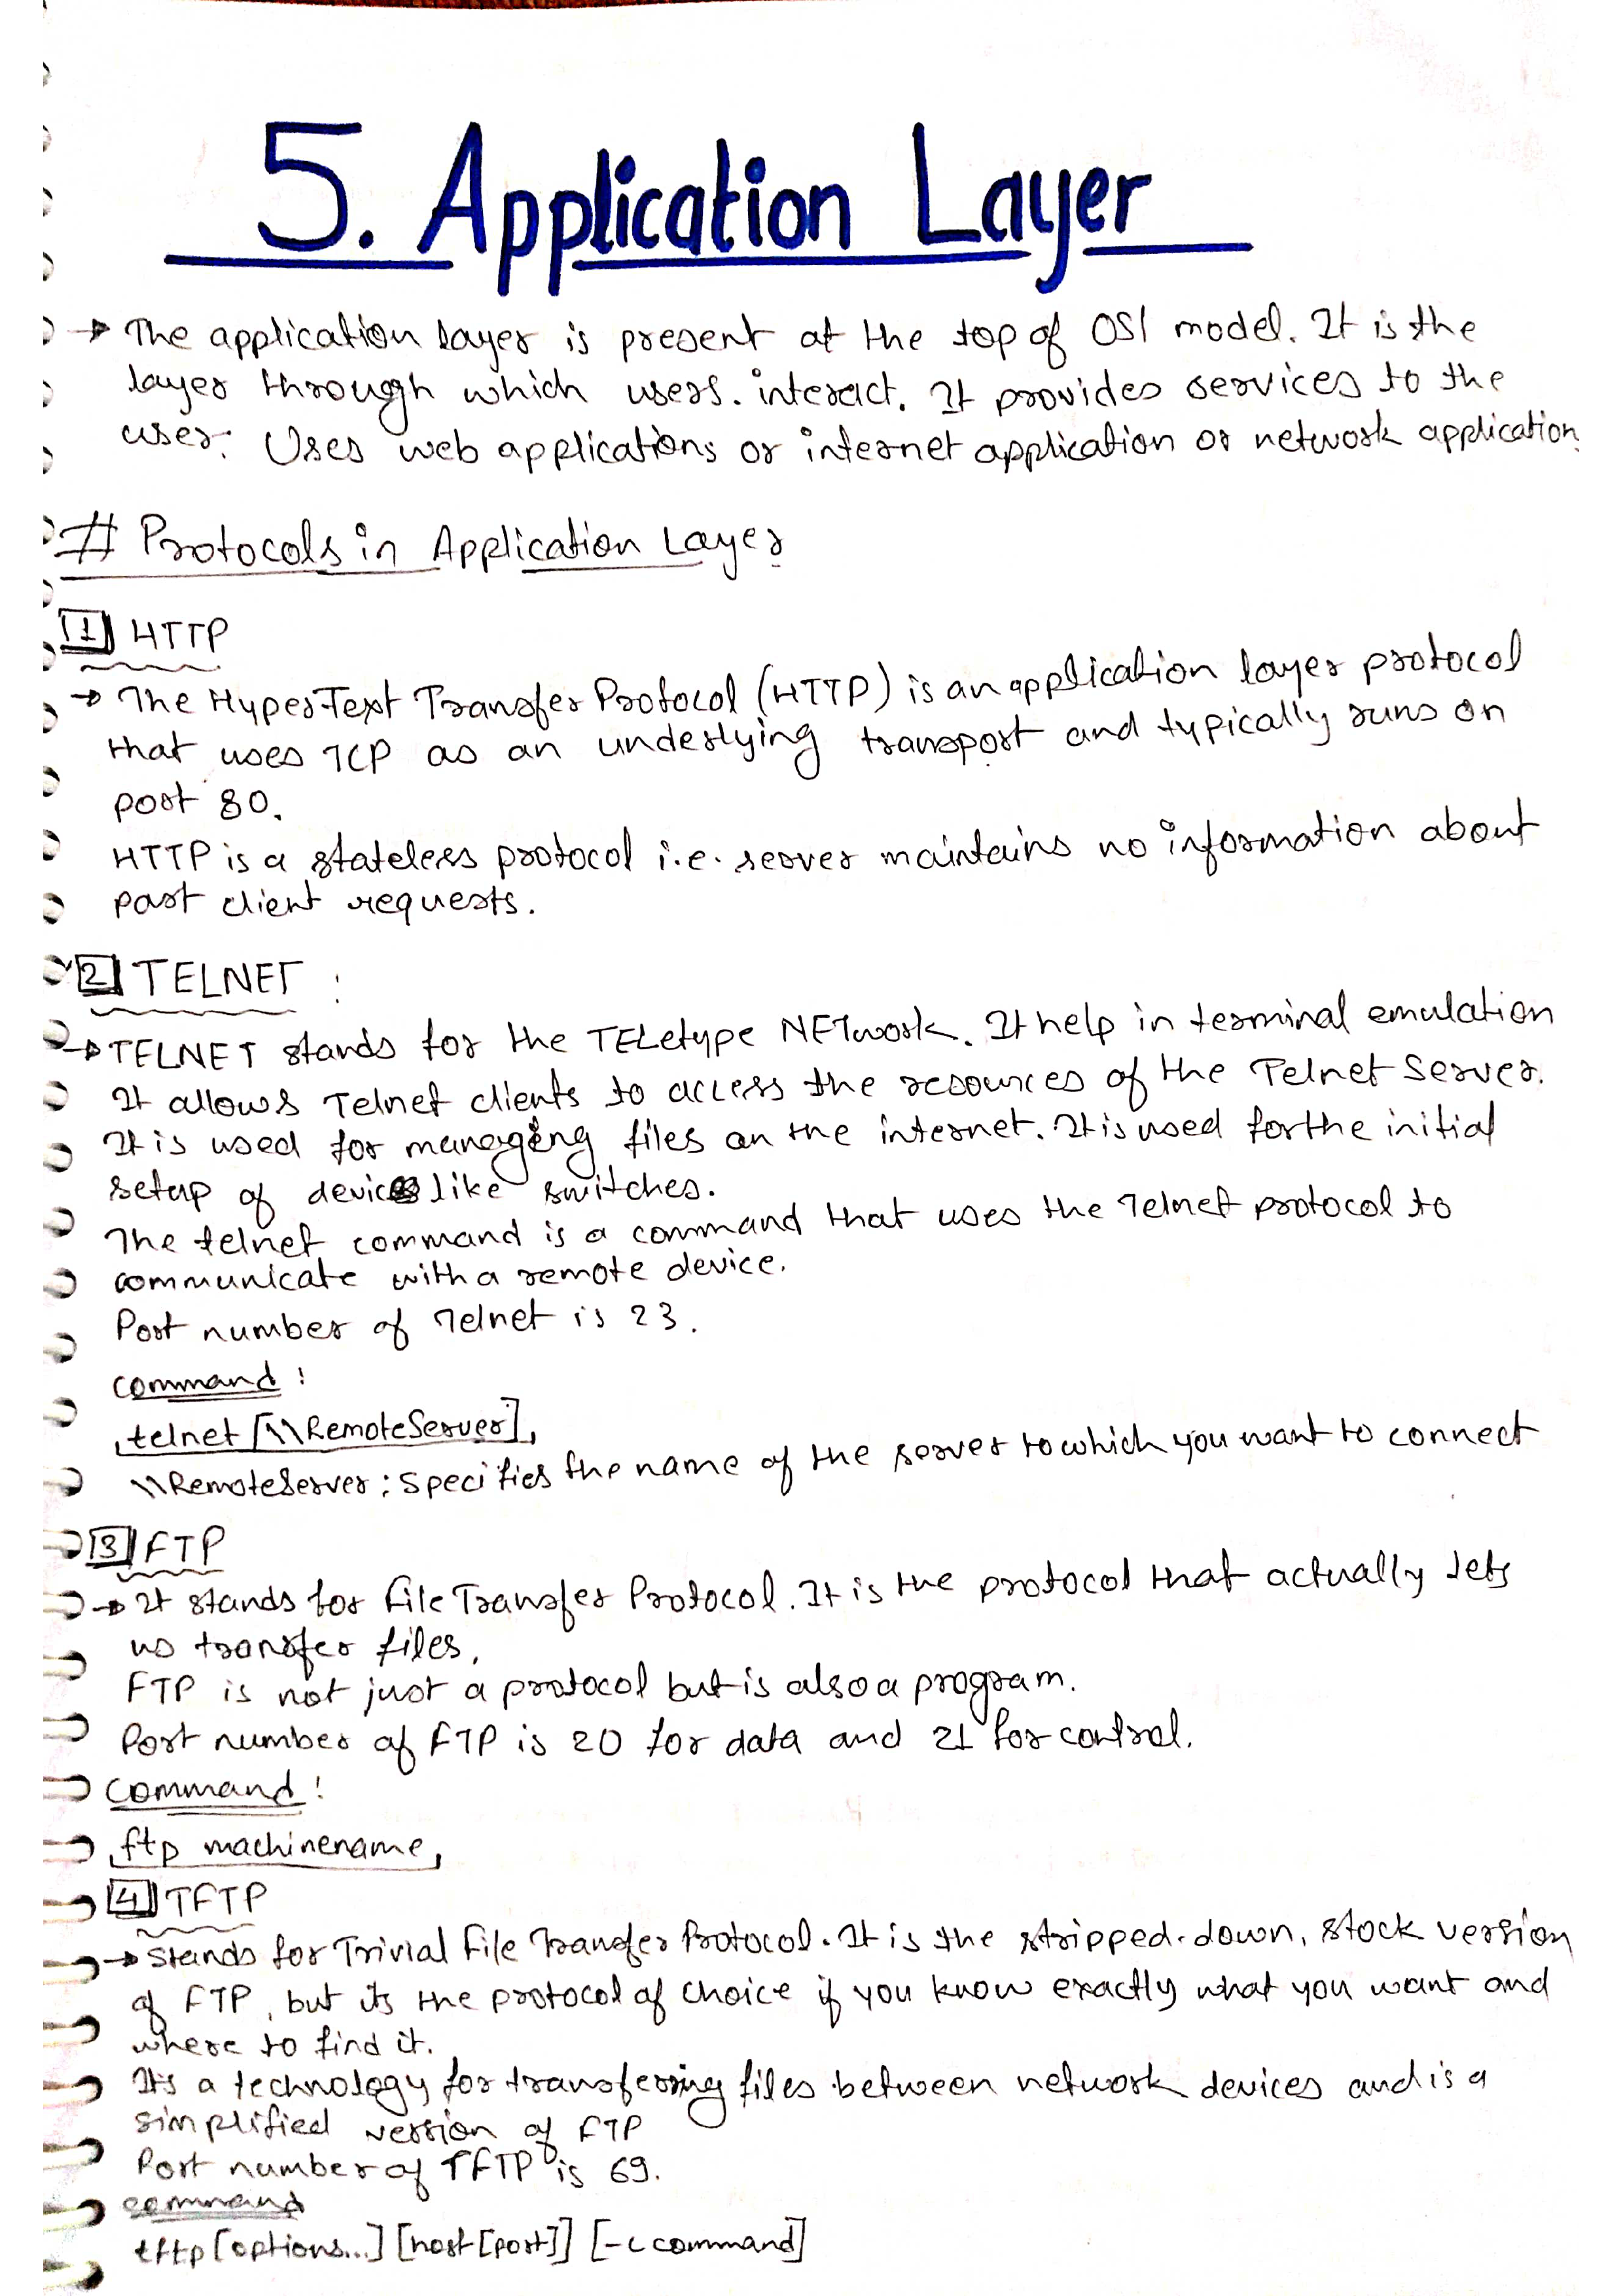 5. Application Layer
→ The application layer is present at the top of OSI model. It is the
layer through which users. interact. It provides services to the
user. Uses web applications or internet application or network application.
# Protocols in Application Layer
1 HTTP
→ The HyperText Transfer Protocol (HTTP) is an application layer protocol
that uses TCP as an underlying transport and typically runs on
port 80.
HTTP is a stateless protocol i.e. server maintains no information about
past client requests.
2 TELNET :
→ TELNET stands for the TELetype NETwork. It help in terminal emulation
It allows Telnet clients to access the resources of the Telnet Server.
It is used for managing files on the internet. It is used for the initial
setup of devices like switches.
The telnet command is a command that uses the Telnet protocol to
communicate with a remote device.
Port number of Telnet is 23.
command :
telnet [\\RemoteServer]
\\RemoteServer : Specifies the name of the server to which you want to connect
3 FTP
→ It stands for File Transfer Protocol. It is the protocol that actually lets
us transfer files.
FTP is not just a protocol but is also a program.
Port number of FTP is 20 for data and 21 for control.
Command :
ftp machinename
4 TFTP
→ Stands for Trivial File Transfer Protocol. It is the stripped-down, stock version
of FTP, but its the protocol of choice if you know exactly what you want and
where to find it.
It's a technology for transferring files between network devices and is a
simplified version of FTP
Port number of TFTP is 69.
command
tftp [options...] [host [port]] [-c command]